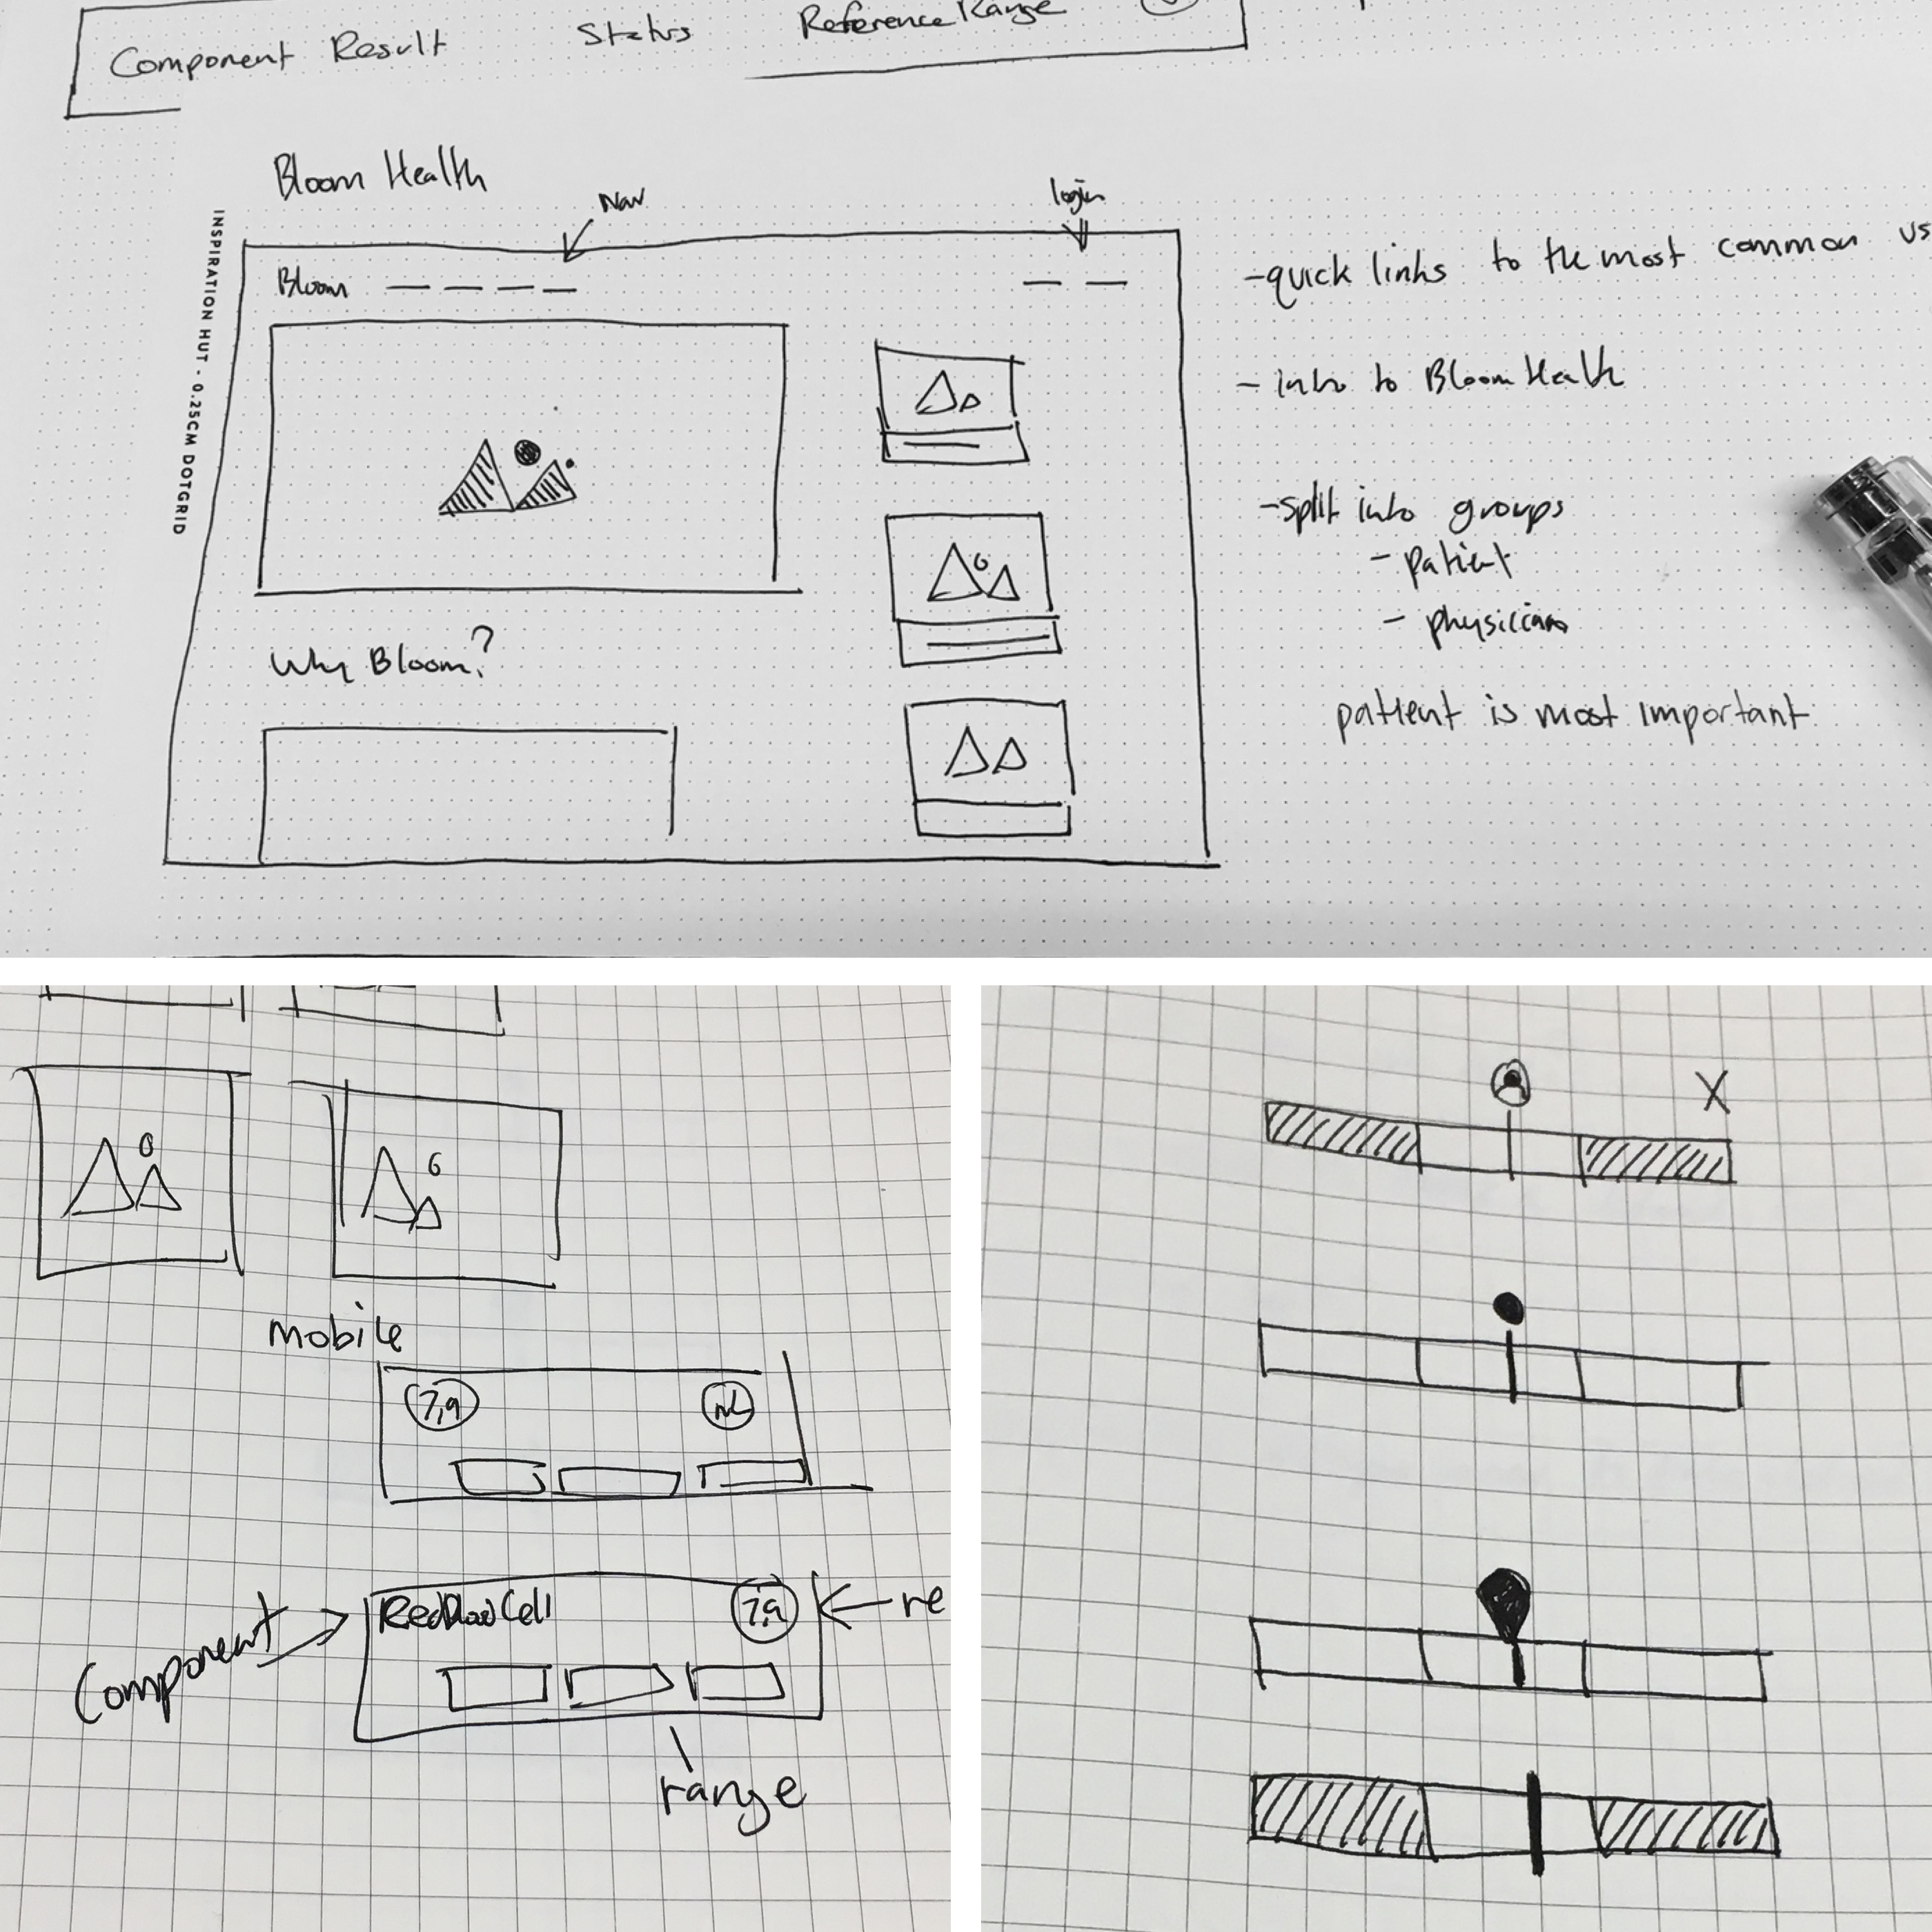 Component Result Status Reference Range
Bloom Health
Nav
login
Bloom
Why Bloom?
INSPIRATION HUT - 0.25CM DOTGRID
-quick links to the most common us
- intro to Bloom Health
-split into groups
- patient
- physician
patient is most important
mobile
7,9
Component
Red Blood Cell
7,9
re
range
X